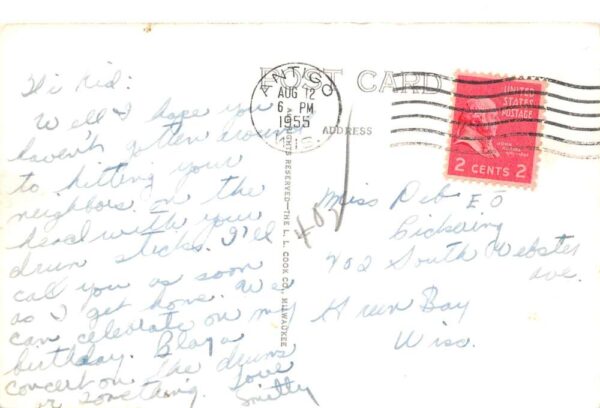 POST CARD
ANTIGO
AUG 12
6 PM
1955
WIS.
ADDRESS
UNITED
STATES
POSTAGE
JOHN ADAMS
2 CENTS 2
ALL RIGHTS RESERVED—THE L. L. COOK CO., MILWAUKEE
Hi Kid:
Well I hope you
haven't gotten around
to hitting your
neighbors on the
head with your
drum sticks. I'll
call you as soon
as I get home. We
can celebrate on my
birthday. Play a
concert on the drums
or something. Love
Smitty
402
Miss Deb
Pickering
402 South Webster
Ave.
Green Bay
Wisc.